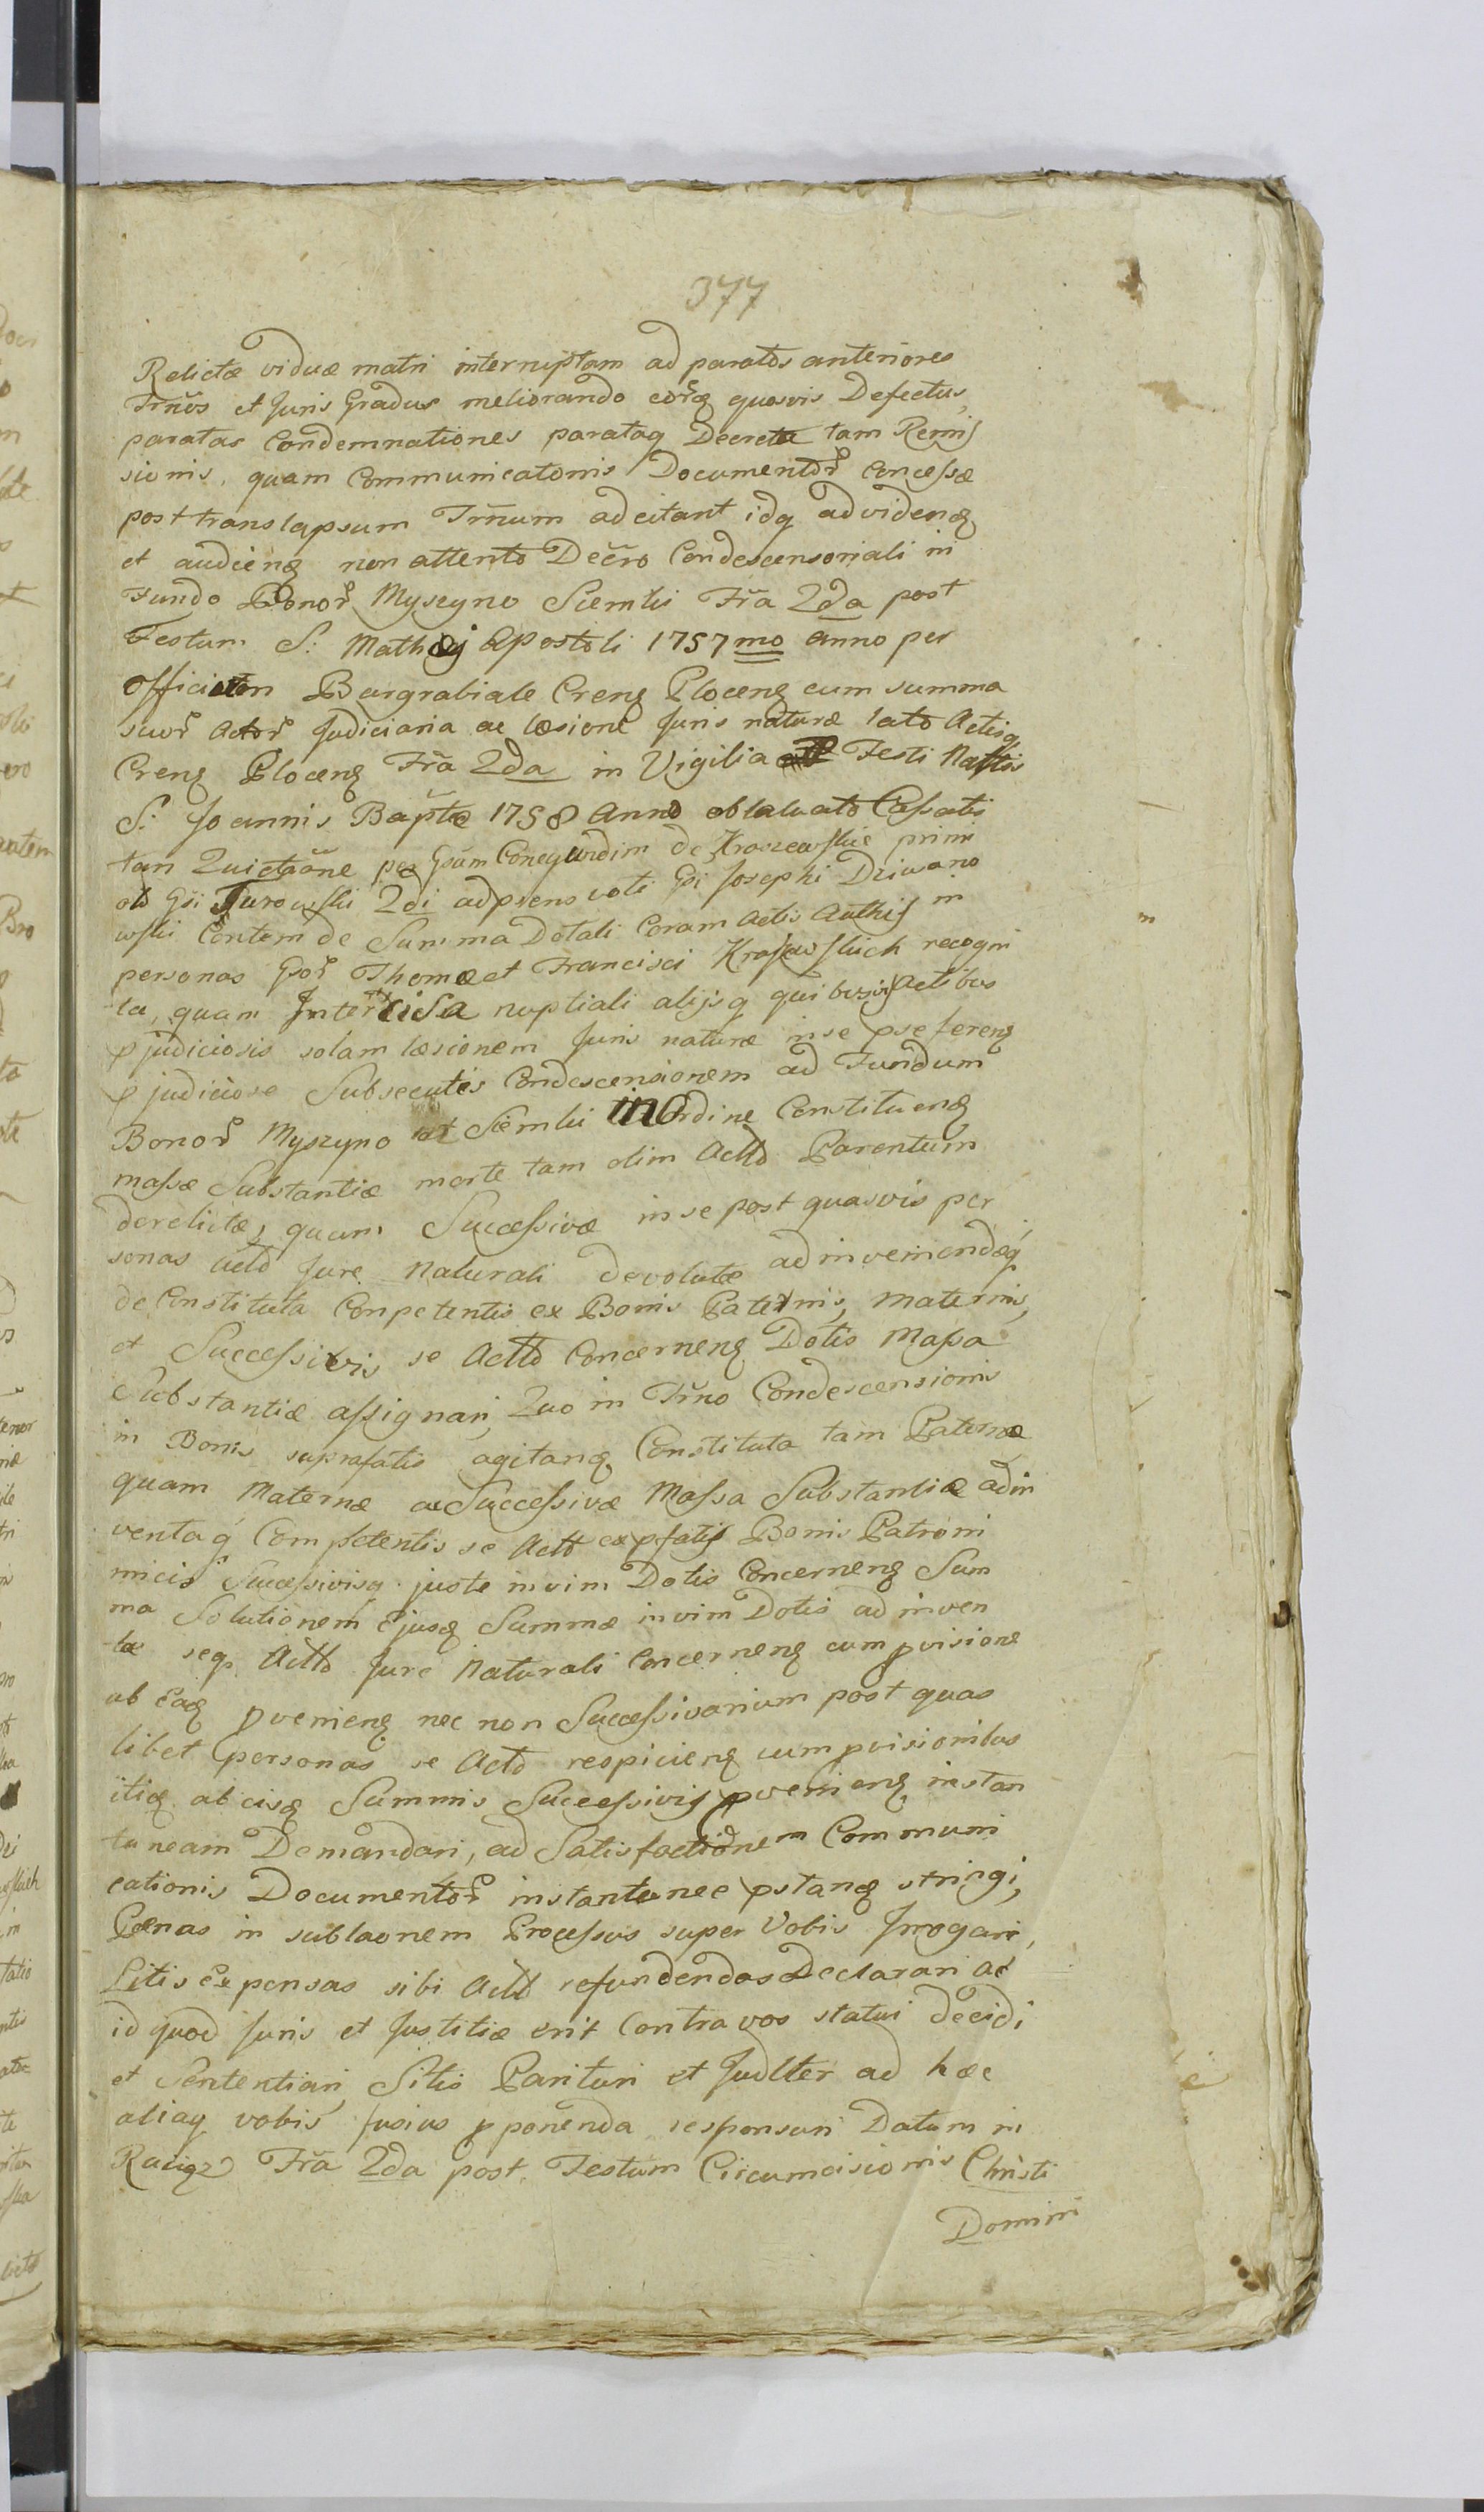 377
Relictæ viduæ matri interruptam ad paratos anteriores
Trños et Juris Gradus meliorando eorq quosvis Defectus,
paratas Condemnationes parataq Decreta tam Remis
sionis, quam Communicatonis Documentor Concessæ
post translapsum Trnum adcitant idq ad videnq
et audienq non attento Decro Condescensoriali in
Fundo Bonor Myszyno Siemki Fra 2da post
Festum S: Mathæj Apostoli 1757mo anno per
Officium Burgrabiale Crenq Plocenq cum summa
suor Actor Judiciaria ac læsione Juris naturæ lato Actisq
Crenq Plocenq Fra 2da in Vigilia Festi Nattis
S: Joannis Baptæ 1758 Anno oblatuato Cassatis
tan Quietaone per Gsam Conegundim de Kraszewskie primi
olo Gsi Turowski 2di ad prens voti Gsi Josephi Dziwano
wski Contem de Summa Dotali Coram Actis Authis in
personas Gsor Thomæ et Francisci Krasewskich recogni
ta, quam Intercisa nuptiali alijsq quibusvis Actibus
pjudiciosis solam læsionem Juris naturæ in se pseferenq
pjudiciose Subsecutis Condescensionem ad Fundum
Bonor Myszyno et Siemki in Ordine Constituenq
massæ Substantiæ morte tam olim Actto Parentum
derelictæ, quam Successivæ in se post quasvis per
sonas Actto Jure Naturali devolutæ adinveniendæq
de Constituta Conpetentis ex Bonis Paternis, Maternis,
et Successivis se Actto Concernenq Dotis Massa
Substantiæ assignari, Quo in Trno Condescensionis
in Bonis suprafatis agitanq Constituta tam Paternæ
quam Maternæ ac Successivæ Massa Substantiæ adin
ventaq Competentis se Actto ex pfatis Bonis Patrimo
niicis Successivisq juste in vim Dotis Concernenq Sum
ma Solutionem Ejusq Summæ in vim Dotis ad inven
tæ seq Actto Jure Naturali Concernenq cum pvisione
ab Eaq pvenienq nec non Successivarium post quas
libet personas se Actto respicienq cum pvisionibus
itiq ab eisq Summis Successivis pvenienq instan
taneam Demandari, ad Satisfactionem Communi
cationis Documentor instantanee pstanq stringi,
Pœnas in sublaonem Processus super Vobis Irrogari,
Litis Expensas sibi Actto refundendas Declarari ac
id quod Juris et Justitiæ erit Contra vos statui decidi
et Sententiari, Sitis Parituri et Judlter ad hæc
aliaq vobis fusius pponenda responsuri Datum in
Raciąz Fra 2da post Festum Circumcisionis Christi
Domini